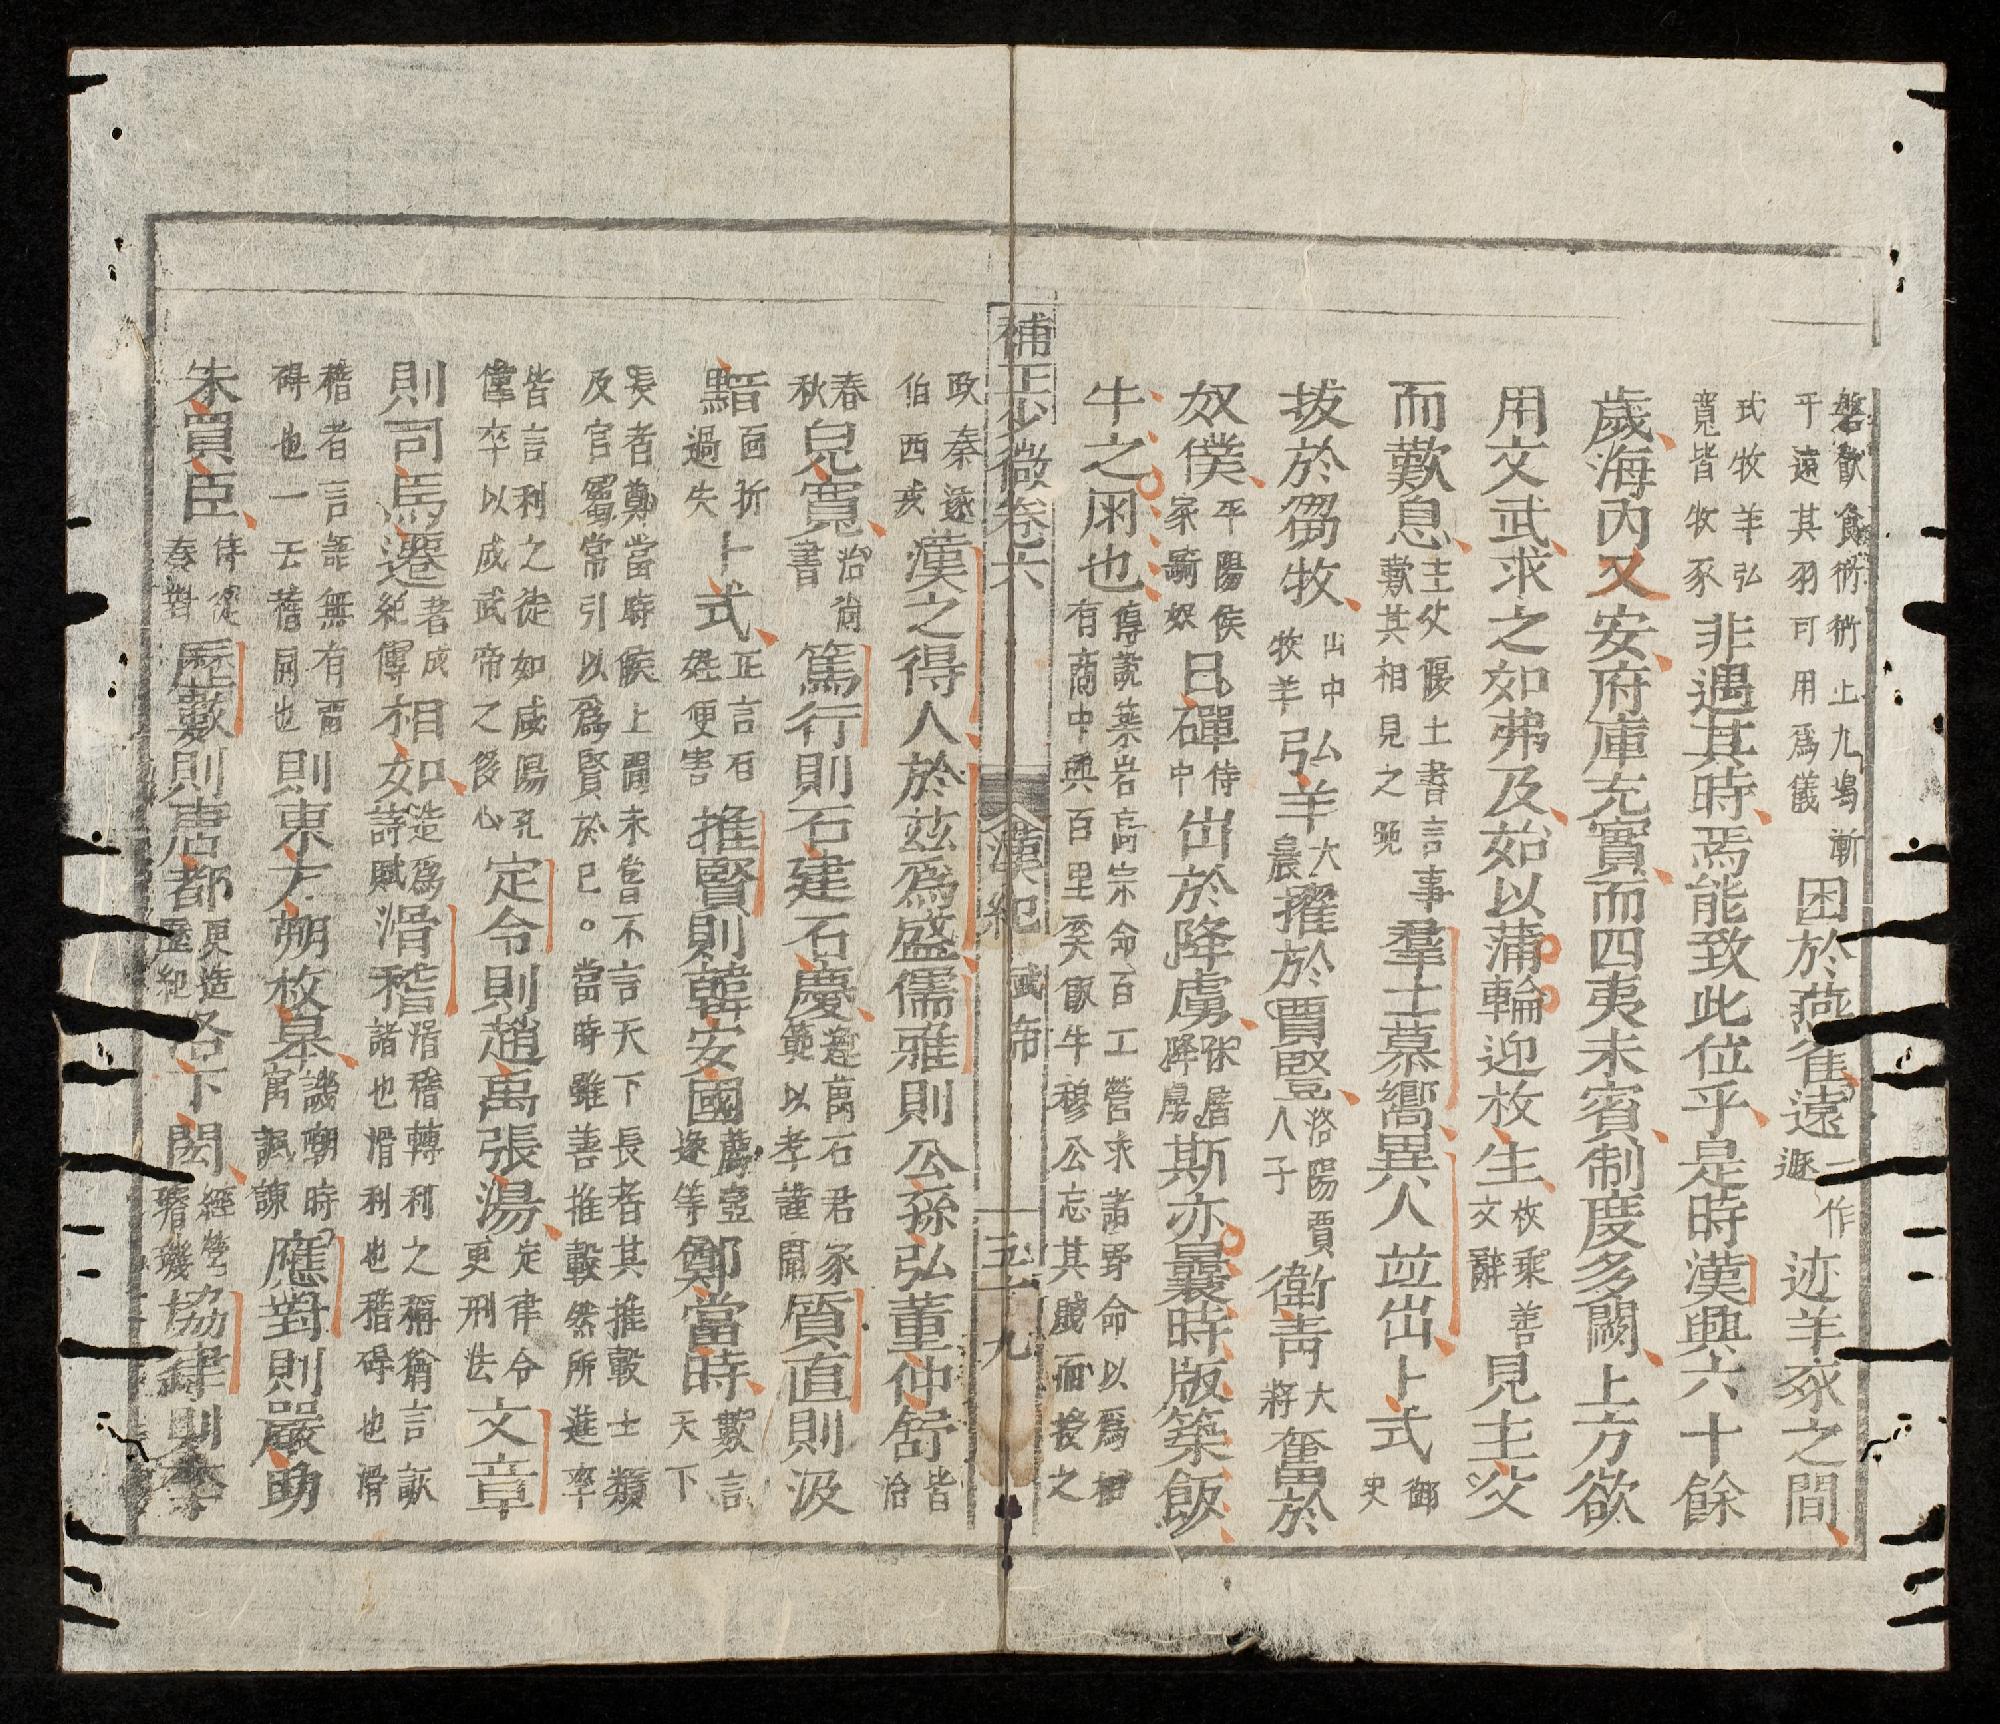 磐飮食衎衎上九鴻漸
于遠其羽可用爲儀
困於燕雀遠
一作
遯
迹羊豕之間
式牧羊弘
寬皆牧豕
非遇其時焉能致此位乎是時漢興六十餘
歲海内乂安府庫充實而四夷未賓制度多闕上方欲
用文武求之如弗及始以蒲輪迎枚生
枚乘善
文辭
見主父
而歎息
主父偃上書言事
歎其相見之晩
羣士慕嚮異人竝出卜式
御
史
拔於芻牧
山中
牧羊
弘羊
大
農
擢於賈豎
洛陽賈
人子
衛靑
大
將
奮於
奴僕
平陽侯
家騎奴
日磾
侍
中
出於降虜
休屠
降虜
斯亦曩時版築飯
牛之朋也
傅說築岩高宗命百工營求諸野命以爲相
有商中興百里奚飯牛穆公忘其賤而授之
補正少微卷六 漢紀 武帝 五十九
政秦遂
伯西戎
漢之得人於玆爲盛儒雅則公孫弘董仲舒
皆
治
春
秋
兒寬
治尙
書
篤行則石建石慶
建萬石君家
慶以孝謹聞
質直則汲
黯
面折
過失
卜式
正言石
慶便害
推賢則韓安國
薦壺
遂等
鄭當時
數言
天下
長者鄭當時候上間未嘗不言天下長者其推轂士類
及官屬常引以爲賢於已。當時雖善推轂然所進率
皆言利之徒如咸陽孔
僅卒以成武帝之侈心
定令則趙禹張湯
定律令
更刑法
文章
則司馬遷
著成
紀傳
相如
造爲
詩賦
滑稽
滑稽轉利之稱猶言詼
諧也滑利也稽碍也滑
稽者言語無有畱
碍也一云稽同也
則東方朔枚皐
譏嘲時
寓諷諫
應對則嚴助
朱買臣
侍從
奏對
歷數則唐都
更造
歷紀
洛下閎
經營
璿璣
協律則李